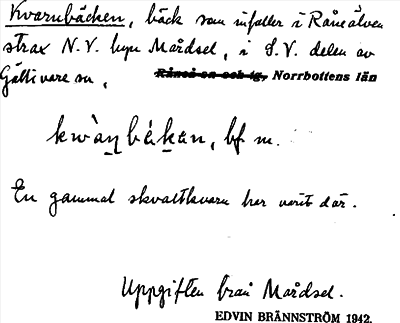 Kvarnbäcken, bäck som infaller i Råneälven
strax N.V. byn Mårdsel, i S.V. delen av
Gällivare sn, Råneå sn och tg, Norrbottens län
kwàṇbä́kan, bf m.
En gammal skvaltkvarn har varit där.
Uppgiften från Mårdsel.
EDVIN BRÄNNSTRÖM 1942.